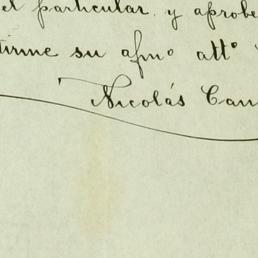 el particular, y aprobe
tirme su afmo atto
Nicolás Can